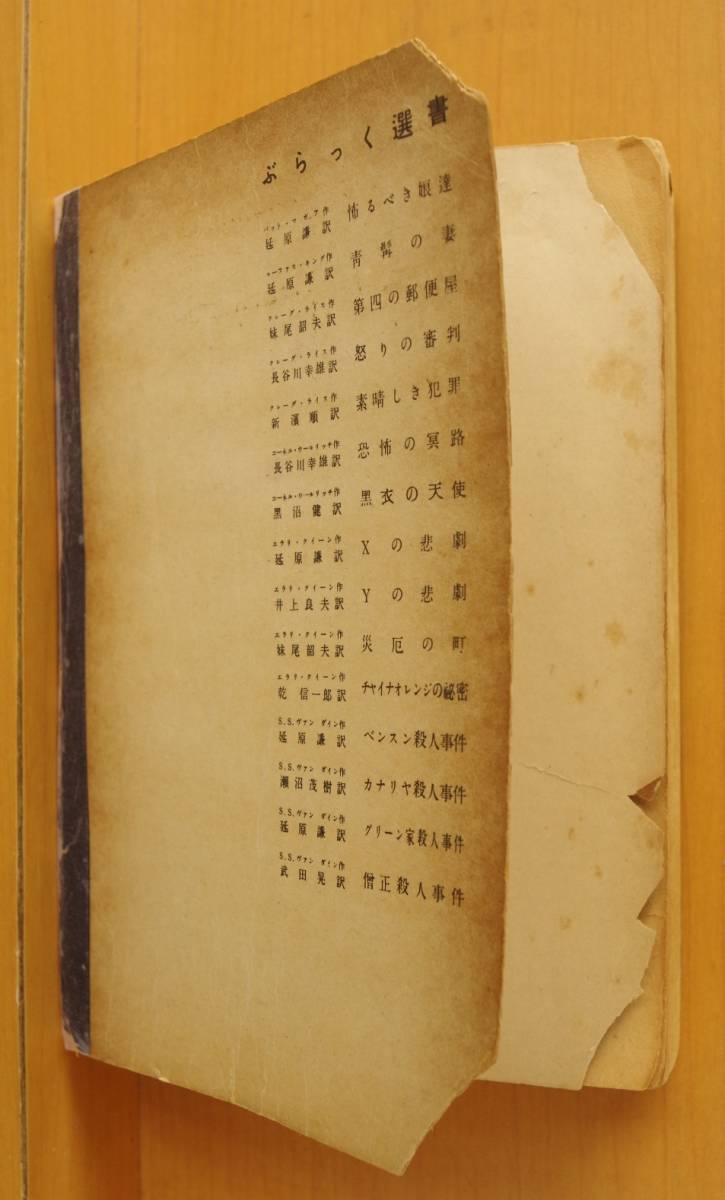 ぶらっく選書
パット・マガア作
延原謙訳
怖るべき娘達
ルーファス・キング作
延原謙訳
青髯の妻
クレーグ・ライス作
妹尾韶夫訳
第四の郵便屋
クレーグ・ライス作
長谷川幸雄訳
怒りの審判
クレーグ・ライス作
新濱順訳
素晴しき犯罪
コーネル・ウールリッチ作
長谷川幸雄訳
恐怖の冥路
コーネル・ウールリッチ作
黒沼健訳
黒衣の天使
エラリ・クイーン作
延原謙訳
Xの悲劇
エラリ・クイーン作
井上良夫訳
Yの悲劇
エラリ・クイーン作
妹尾韶夫訳
災厄の町
エラリ・クイーン作
乾信一郎訳
チャイナオレンジの祕密
S.S.ヴァン ダイン作
延原謙訳
ベンスン殺人事件
S.S.ヴァン ダイン作
瀬沼茂樹訳
カナリヤ殺人事件
S.S.ヴァン ダイン作
延原謙訳
グリーン家殺人事件
S.S.ヴァン ダイン作
武田晃訳
僧正殺人事件